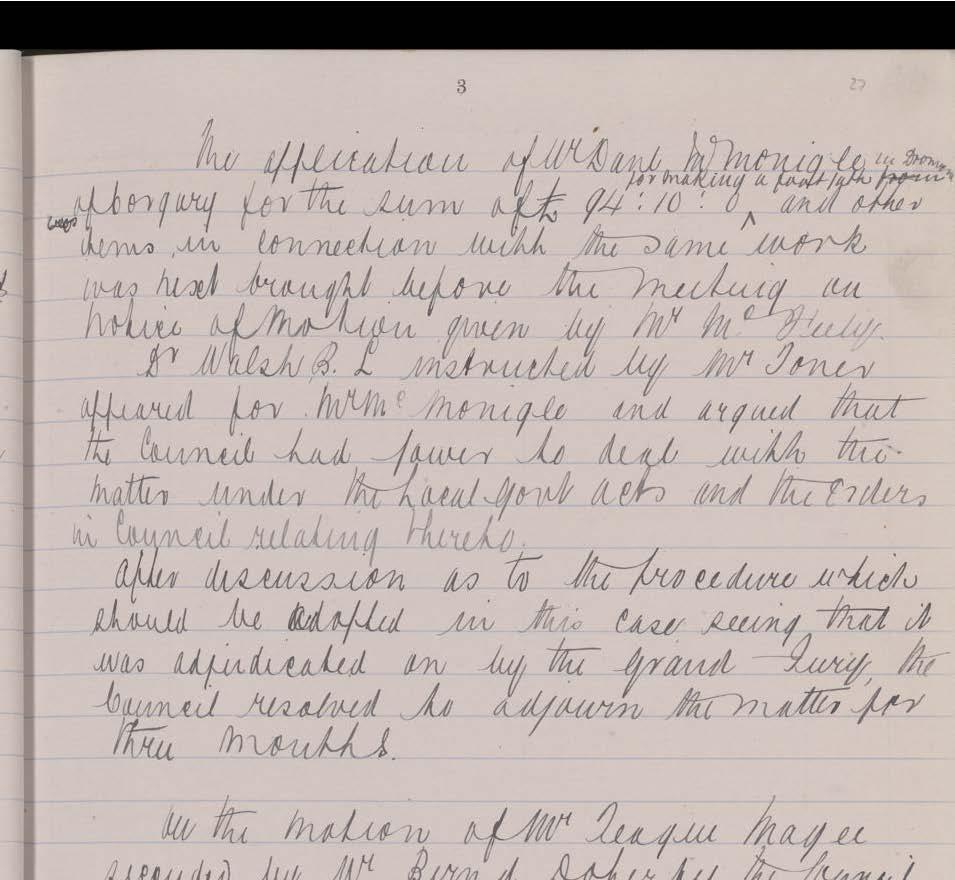 3
27
The application of Mr Danl McMonigle in
for making a foot path from
of borgary for the sum of £ 94:10:0 ^ and other
items in connection with the same work
was next brought before the meeting on
Notice of Motion given by Mr Mc Feely.
Dr Walsh B. L instructed by Mr Toner
appeared for Mr Mc Monigle and argued that
the Council had power to deal with the
matter under the Local Govt Acts and the Orders
in Council relating thereto.
After discussion as to the procedure which
should be adopted in this case seeing that it
was adjudicated on by the Grand Jury, the
Council resolved to adjourn the matter for
three months.
On the motion of Mr Teague Magee
seconded by Mr Bernd Doherty the Council